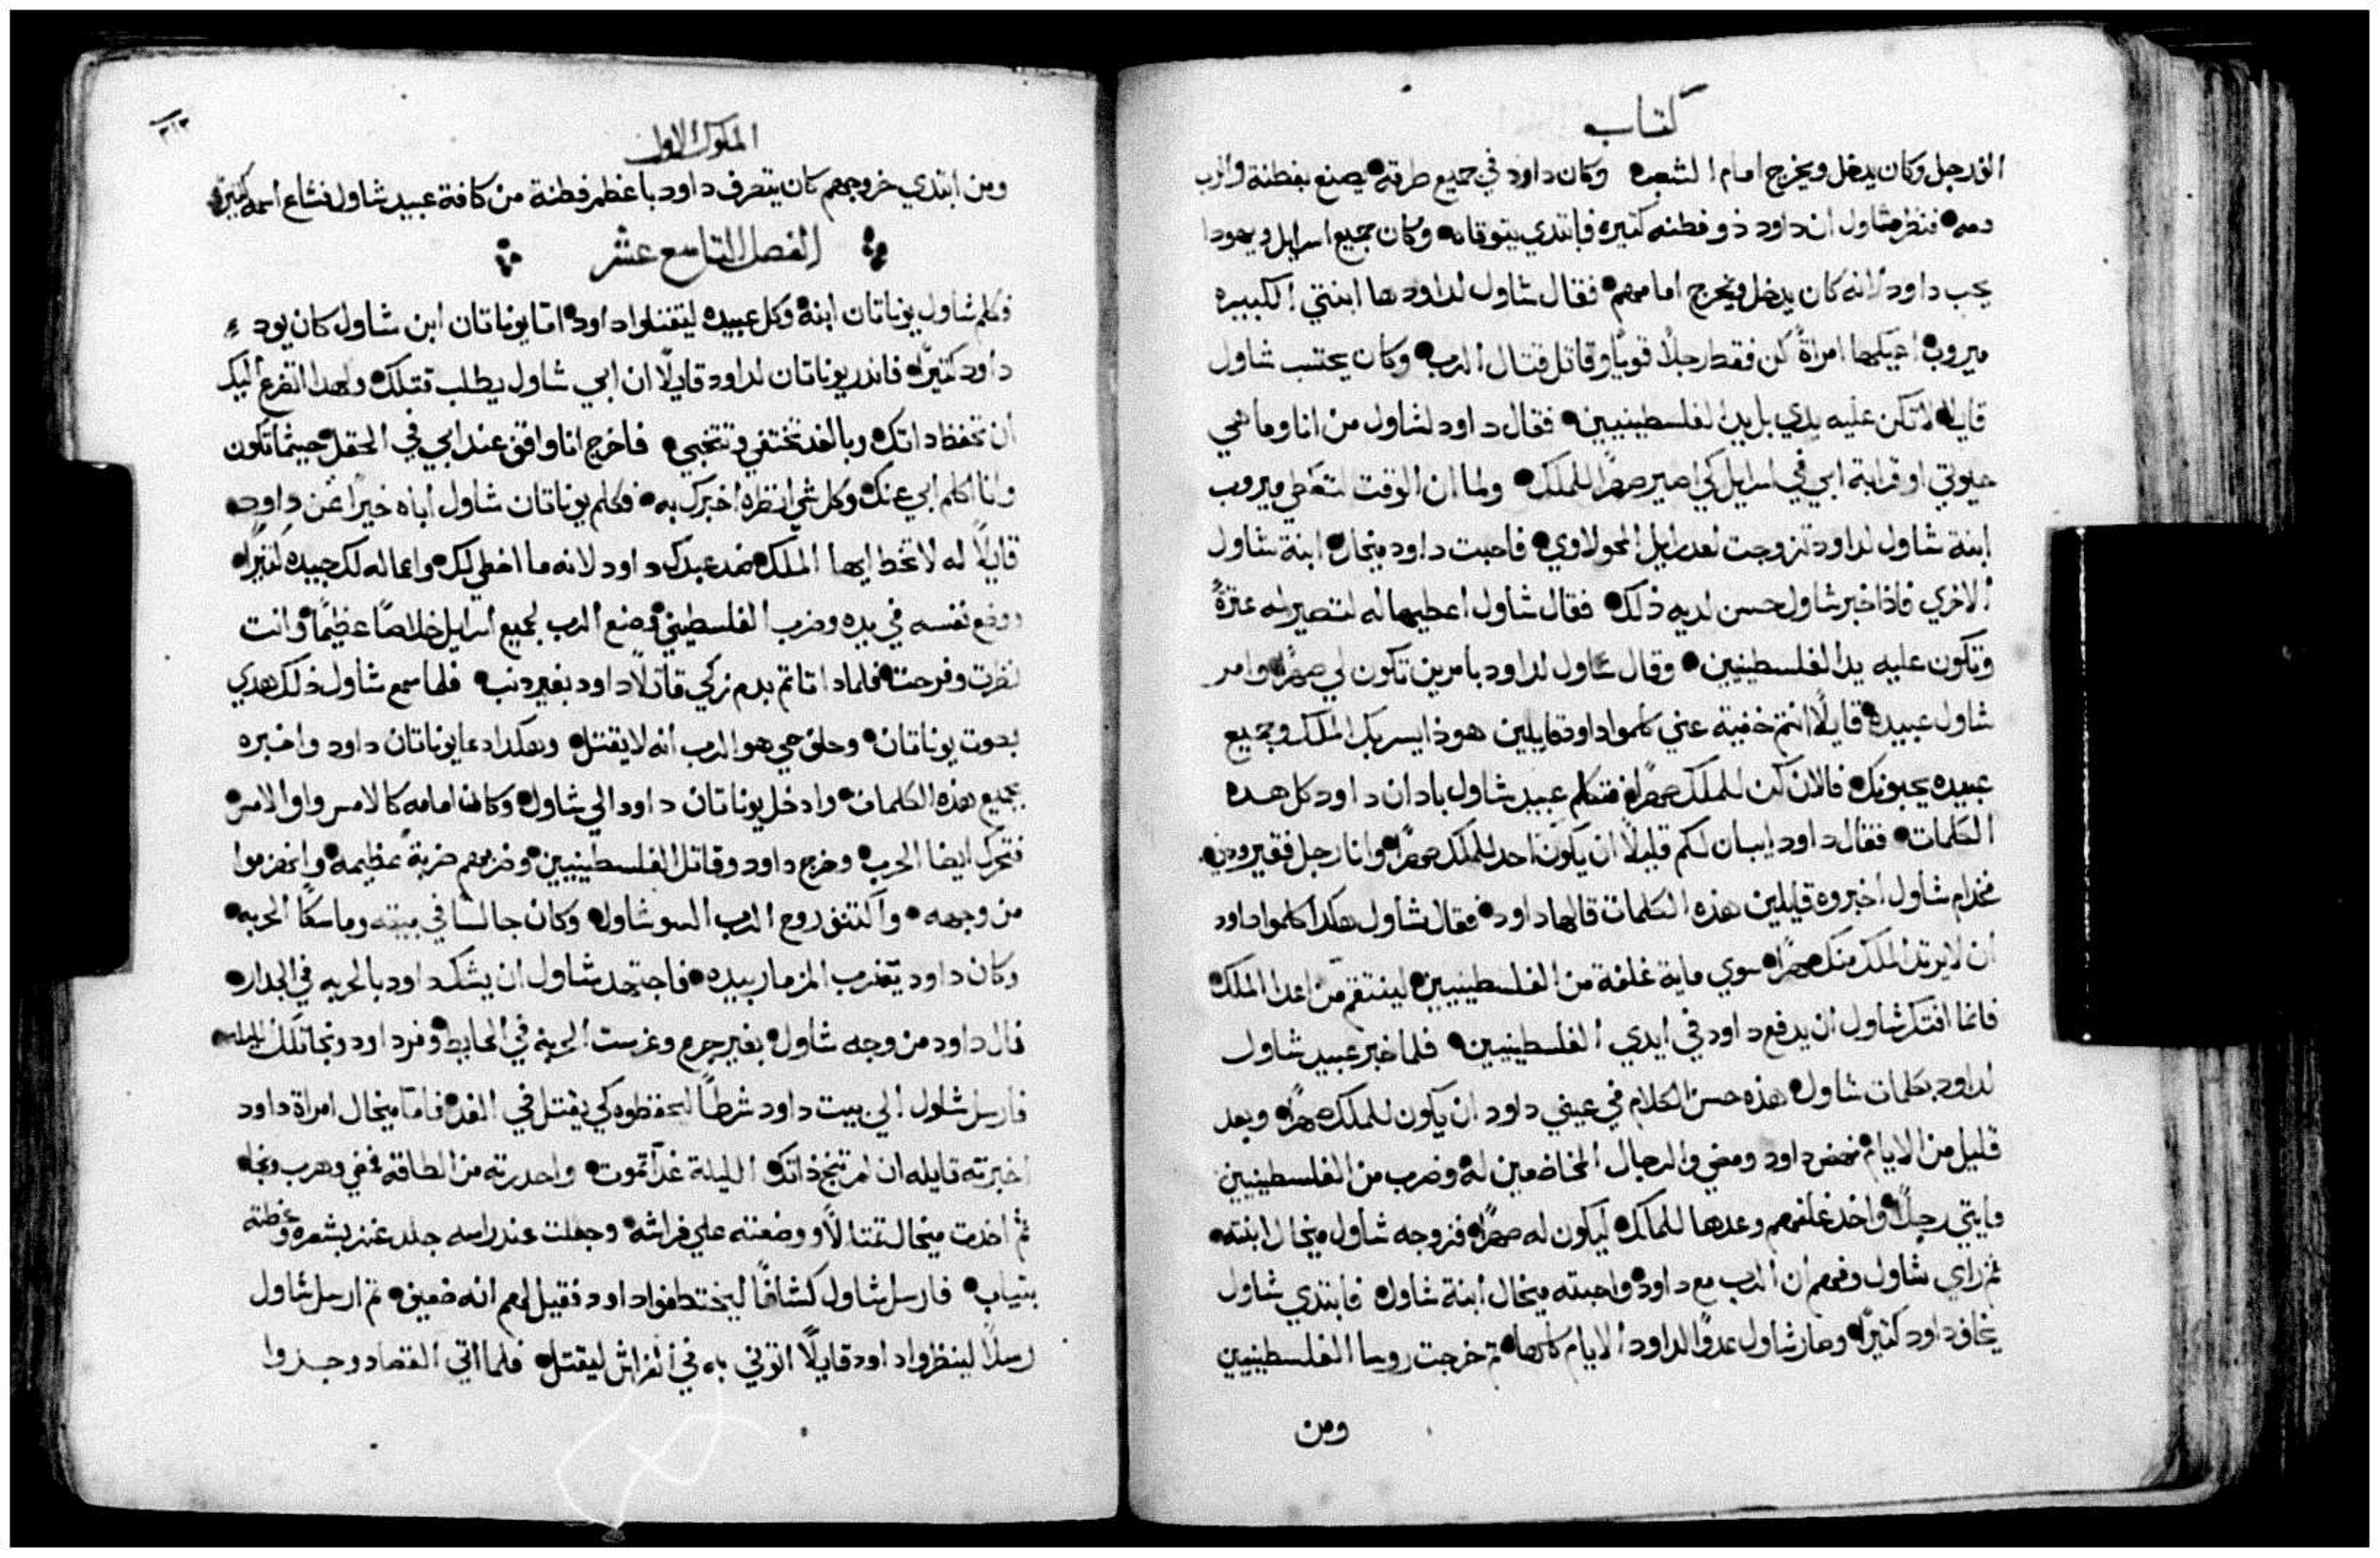 كتاب
الف رجل وكان يدخل ويخرج امام الشعب وكان داود في جميع طرقه يصنع بفطنة والرب
معه فنظر شاول ان داود ذو فطنه كثيره فابتدي يتوقا منه وكان جميع اسرايل ويهودا
يحب داود لانه كان يدخل ويخرج امامهم فقال شاول لداود ها ابنتي الكبيره
ميروب اعطيكها امراةً كن فقط رجلاً قوياً وقاتل قتال الرب وكان يحتسب شاول
قايلا لا تكن عليه يدي بل يد الفلسطينيين فقال داود لشاول من انا وما هي
حيوتي او قرابة ابي في اسرايل كي اصير صهراً للملك ولما ان الوقت لتعطي ميروب
ابنة شاول لداود تزوجت لعدرايل المحولاوي فاحبت داود ميخال ابنة شاول
الاخري فاذا خبر شاول حسن لديه ذلك فقال شاول اعطيها له لتصير له عثرةً
وتكون عليه يد الفلسطينيين وقال شاول لداود بامرين تكون لي صهراً وامر
شاول عبيده قايلاً انتم خفية عني كلموا داود قايلين هوذا يسر بك الملك وجميع
عبيده يحبونك فالان كن للملك صهراً فتكلم عبيد شاول باذان داود كل هذه
الكلمات فقال داود ايبان لكم قليلاً ان يكون احد للملك صهراً وانا رجل فقير ودني
فخدام شاول اخبروه قايلين هذه الكلمات قالها داود فقال شاول هكذا كلموا داود
ان لا يريد الملك منك مهراً سوي ماية غلفة من الفلسطينيين لينتقم من اعدا الملك
فانما افتكر شاول ان يدفع داود في ايدي الفلسطينيين فلما خبر عبيد شاول
لداود بكلمات شاول هذه حسن الكلام في عيني داود ان يكون للملك صهراً وبعد
قليل من الايام نهض داود ومضي والرجال الخاضعين له وضرب من الفلسطينيين
مايتي رجلاً واخذ غلفهم وعدها للملك ليكون له صهراً فزوجه شاول ميخال ابنته
ثم راي شاول وفهم ان الرب مع داود واحبته ميخال ابنة شاول فابتدي شاول
يخاف داود كثيراً وصار شاول عدواً لداود الايام كلها ثم خرجت روسا الفلسطينيين
ومن
الملوك الاول
٣١٣
ومن ابتدي خروجهم كان يتصرف داود باعظم فطنة من كافة عبيد شاول فشاع اسمه كثيراً
الفصل التاسع عشر
وكلم شاول يوناتان ابنه وكل عبيده ليقتلوا داود اما يوناتان ابن شاول كان يود
داود كثيراً فاندر يوناتان لداود قايلاً ان ابي شاول يطلب قتلك ولهدا اتضرع اليك
ان تحفظ داتك وبالغد تختفي وتختبي فاخرج انا واقف عند ابي في الحقل حيثما تكون
وانا اكلم ابي عنك وكل شي انظره اخبرك به فكلم يوناتان شاول اباه خيراً عن داود
قايلاً له لا تخط ايها الملك ضد عبدك داود لانه ما اخطي لك واعماله لك جيده كثيراً
ووضع نفسه في يده وضرب الفلسطيني وصنع الرب لجميع اسرايل خلاصاً عظيماً وانت
نظرت وفرحت فلمادا تاتم بدم زكي قاتلاً داود بغير دنب فلما سمع شاول ذلك هدي
بصوت يوناتان وحلف حي هو الرب انه لا يقتل وهكدا دعا يوناتان داود واخبره
بجميع هذه الكلمات وادخل يوناتان داود الي شاول وكان امامه كالامس واول الامس
فتحرك ايضا الحرب وخرج داود وقاتل الفلسطينيين وضربهم ضربة عظيمه وانهزموا
من وجهه واكتنف روح الرب السو شاول وكان جالسا في بيته وماسكا الحربه
وكان داود يضرب المزمار بيده فاجتهد شاول ان يشك داود بالحربه في الجدار
فمال داود من وجه شاول بغير جرح وغرست الحربه في الحايط وفر داود ونجا تلك الليله
فارسل شاول الي بيت داود شرطاً ليحفظوه كي يقتل في الغد فاما ميخال امراة داود
اخبرته قايله ان لم تنج ذاتك الليلة غداً تموت واحدرته من الطاقه فمضي وهرب ونجا
ثم اخدت ميخال تمتالاً ووضعته علي فراشه وجعلت عند راسه جلد عنز بشعره وغطته
بتياب فارسل شاول كشافاً ليختطفوا داود فقيل لهم انه ضعيف ثم ارسل شاول
رسلاً لينظروا داود قايلاً اتوني به في الفراش ليقتل فلما اتي القصاد وجدوا